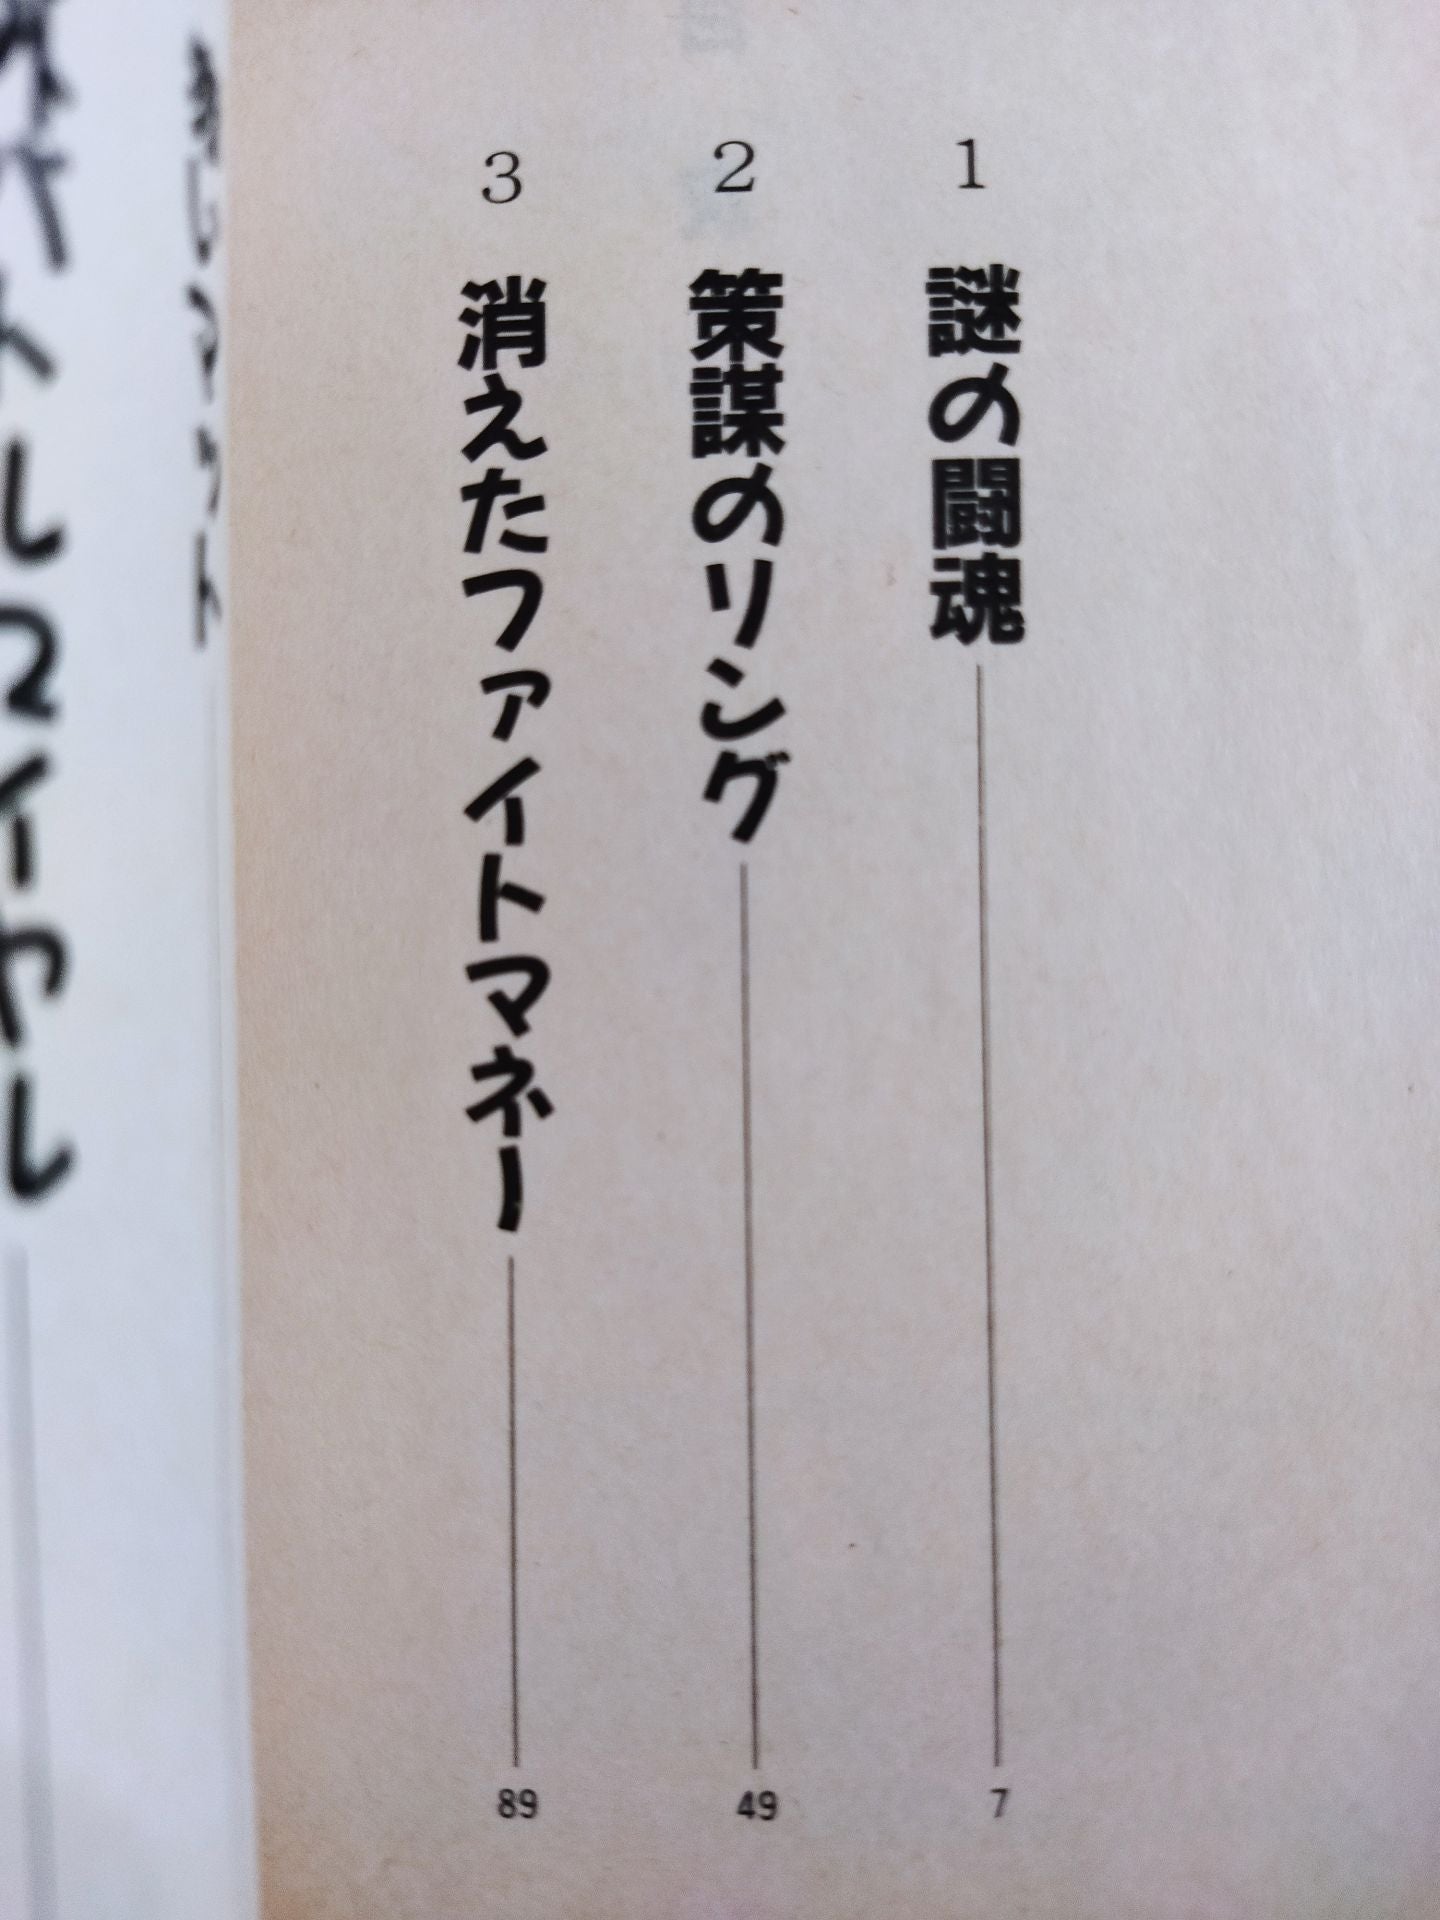 1 謎の闘魂 7
2 策謀のリング 49
3 消えたファイトマネー 89